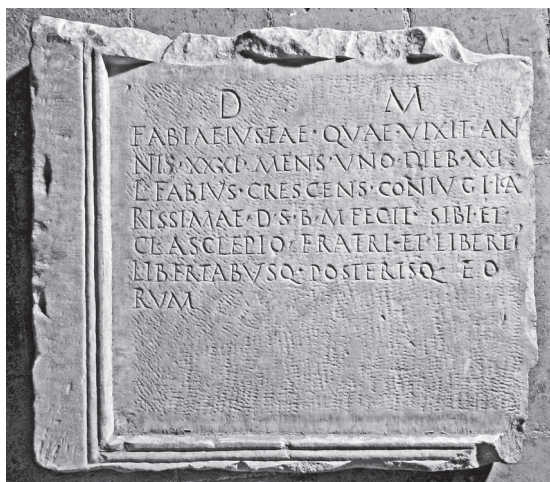 D M
FABIAE IVSTAE · QVAE · VIXIT · AN
NIS · XXXI · MENS · VNO · DIEB · XXI ·
L · FABIVS · CRESCENS · CONIVGI · KA
RISSIMAE · D · S · B · M · FECIT · SIBI · ET
CL · ASCLEPIO · FRATRI · ET · LIBERTI
LIBERTABVSQ · POSTERISQ · EO
RVM